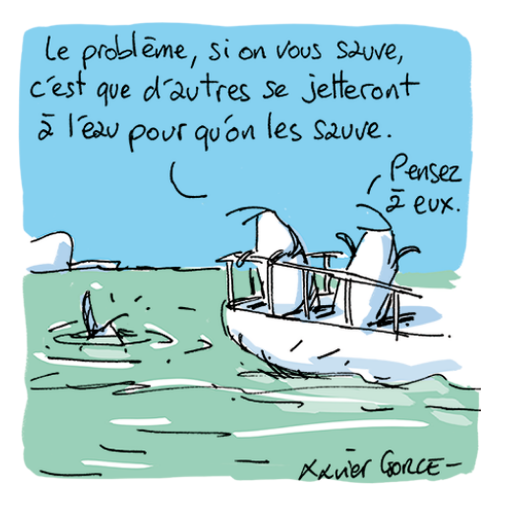 Le problème, si on vous sauve,
c'est que d'autres se jetteront
à l'eau pour qu'on les sauve.
Pensez
à eux.
Xavier GORCE –